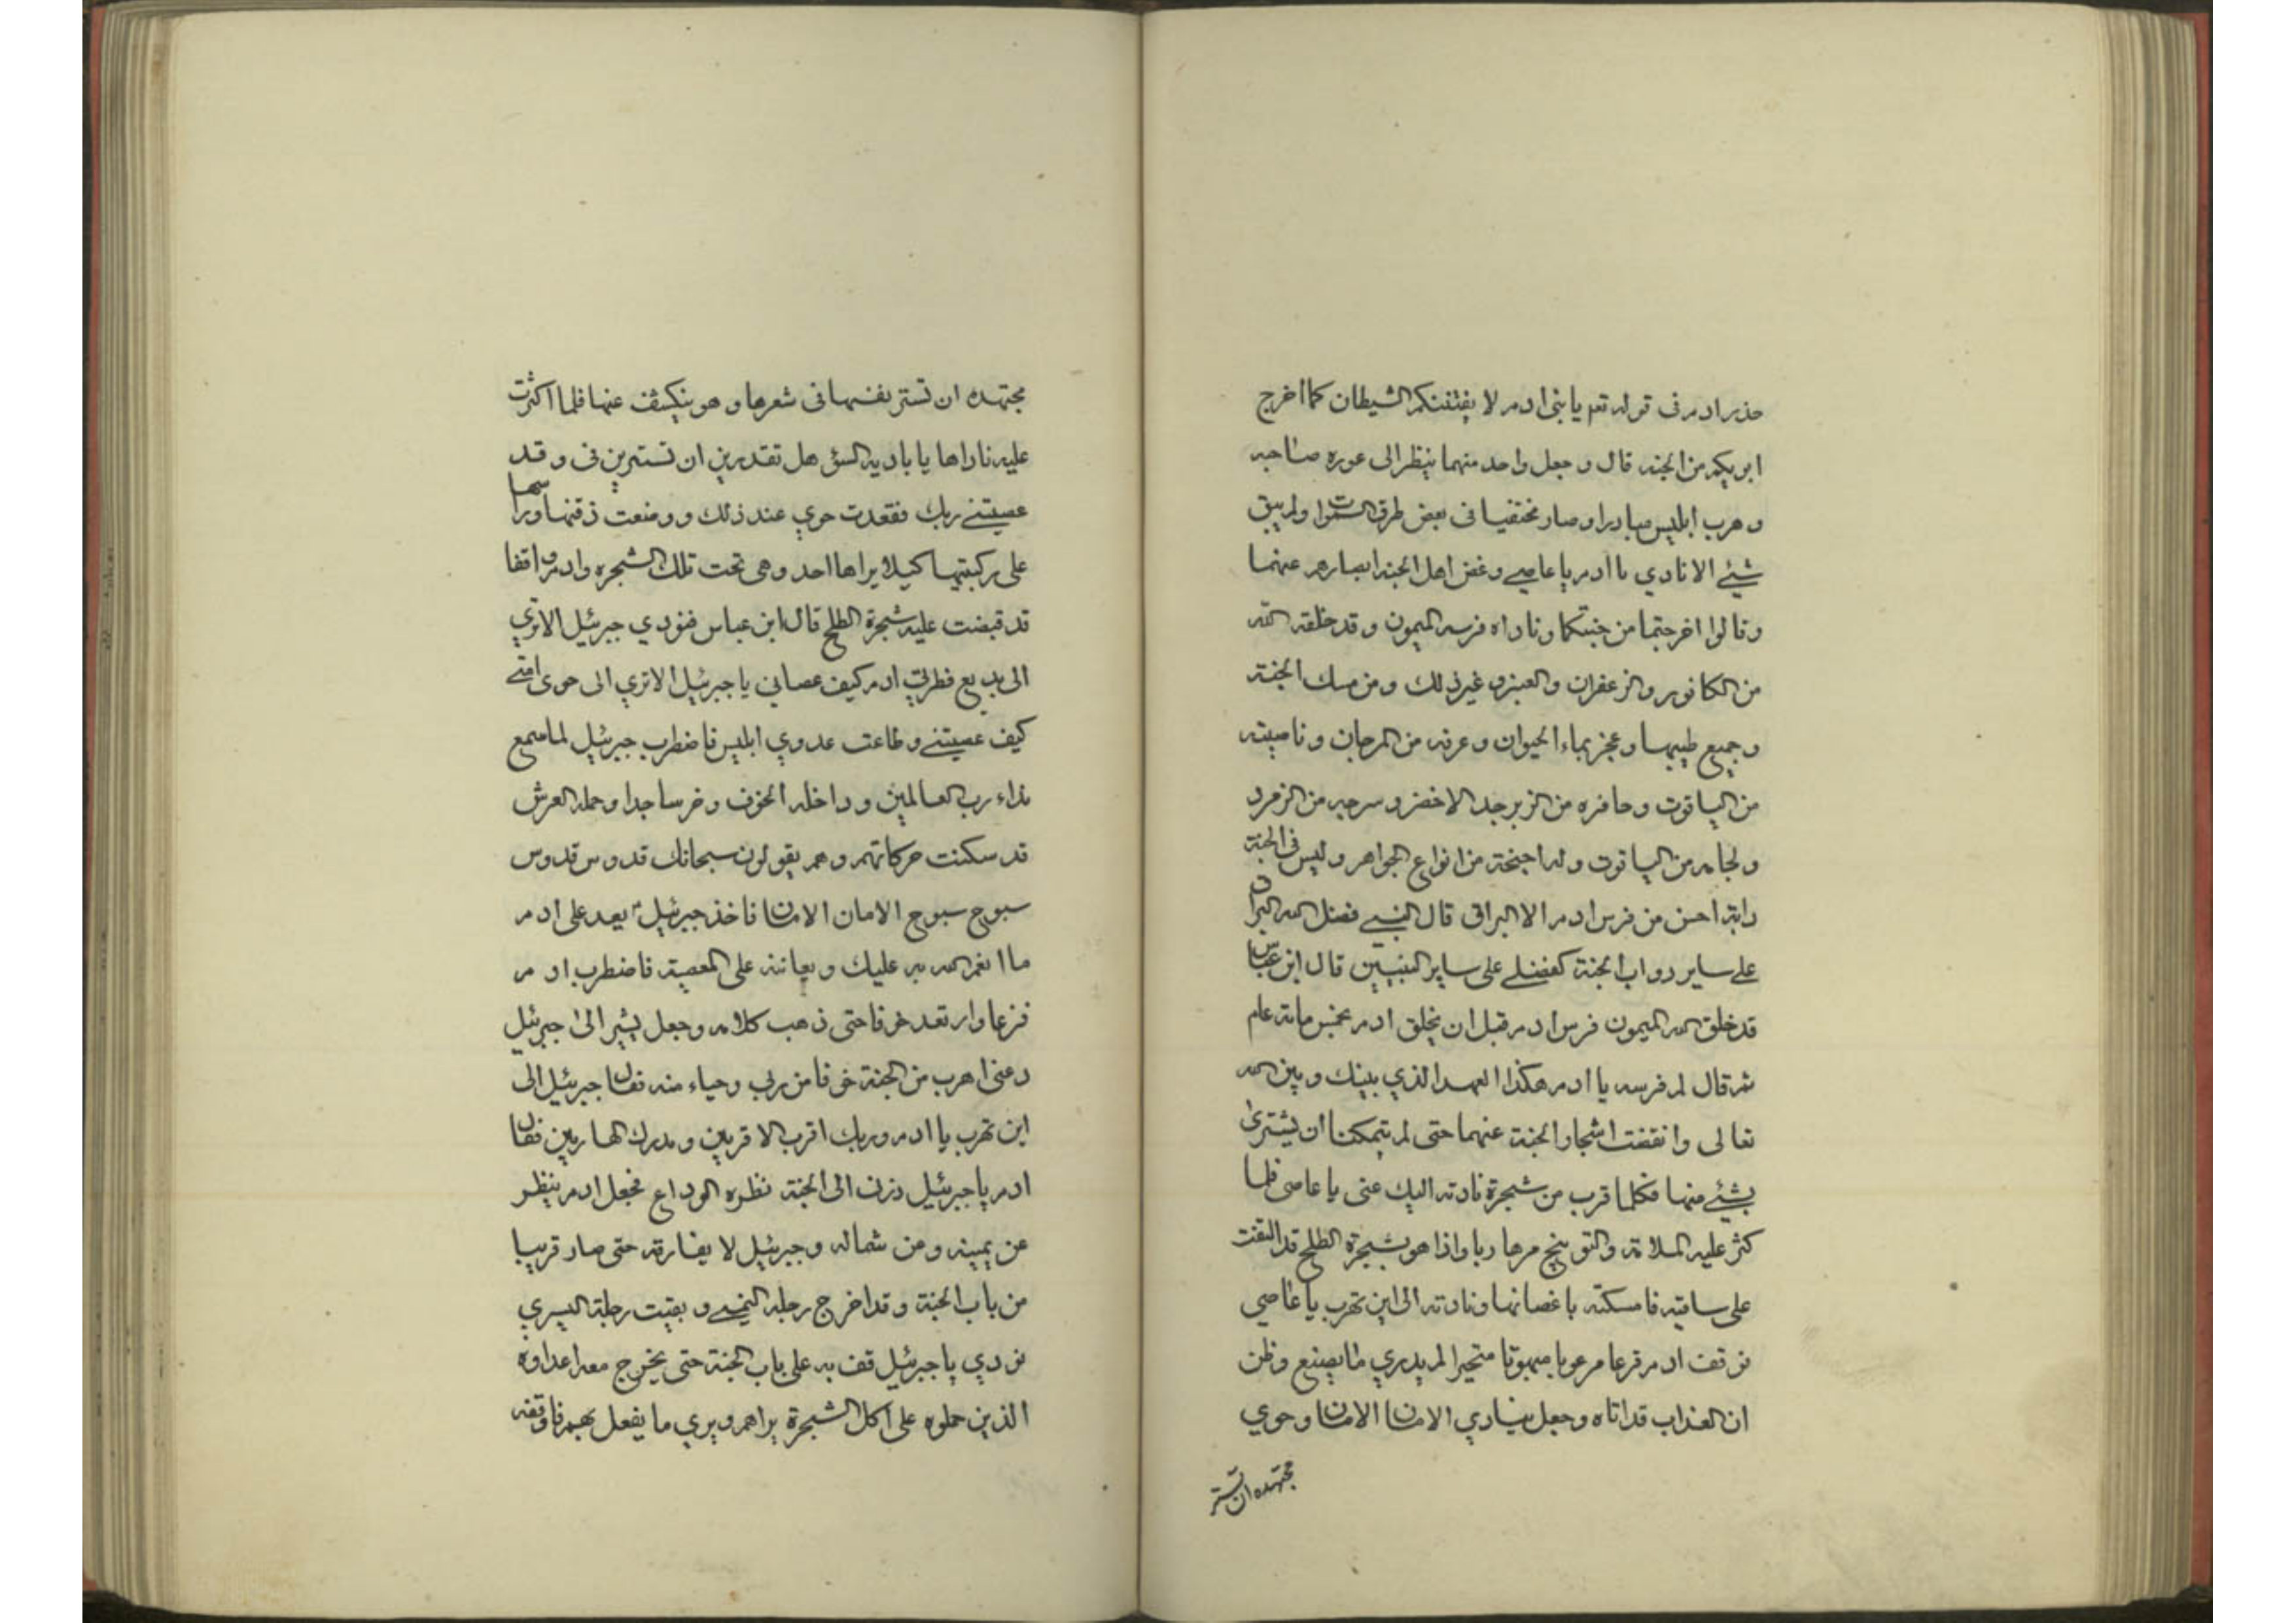 حذر ادم فى قوله تعم يا بنى ادم لا يفتننكم الشيطان كما اخرج
ابويكم من الجنه قال وجعل واحد منهما ينظر الى عوره صاحبه
وهرب ابليس مبادرا وصار مختفيا فى بعض طرق السموات ولم يبق
شيئ الا نادي يا ادم يا عاصي وغض اهل الجنه ابصارهم عنهما
وقالوا اخرجتما من جنتكما وناداه فرسه الميمون وقد خلقه الله
من الكافور والزعفران والعنبر وغير ذلك ومن مسك الجنة
وجميع طيبها وعجز بماء الحيوان وعرفه من المرجان وناصيته
من الياقوت وحافره من الزبرجد الاخضر وسرجه من الزمرد
ولجامه من الياقوت وله اجنحة من انواع الجواهر وليس فى الجنة
دابة احسن من فرس ادم الا البراق قال النبي فضل الله البراق
على ساير دواب الجنة كفضلي على ساير النبيين قال ابن عباس
قد خلق الله الميمون فرس ادم قبل ان يخلق ادم بخمس مائة عام
ثم قال له فرسه يا ادم هكذا العهد الذي بينك وبين الله
تعالى وانقفت اشجار الجنة عنهما حتى لم يتمكنا ان يشترى
بشيئ منها فكلما قرب من شجرة نادته اليك عنى يا عاصى فلما
كثر عليه الملامة والتوبيخ مرها ربا واذا هو بشجرة الطلح قد التفت
على ساقيه فامسكته باغصانها ونادته الى اين تهرب يا عاصي
فوقف ادم فرعا مرعوبا مبهوتا متحيرا لم يدري ما يصنع وظن
ان العذاب قد اتاه وجعل ينادي الامان الامان وحوي
مجتهده ان تستر
مجتهده ان تستر نفسها فى شعرها وهو ينكشف عنها فلما اكثرت
عليه ناداها يا بادية السؤ هل تقدرين ان تستترين فى وقد
عصيتني ربك فقعدت حوي عند ذلك ووضعت ذقنها وراسها
على ركبتيها كيلا يراها احد وهى تحت تلك الشجره وادم واقفا
قد قبضت عليه شجرة الطلح قال ابن عباس فنودي جبرئيل الا تري
الى بديع فطرتي ادم كيف عصانى يا جبرئيل الا تري الى حوى امتي
كيف عصيتني وطاعت عدوي ابليس فاضطرب جبرئيل لما سمع
نداء رب العالمين وداخله الخوف وخر ساجدا وحمله العرش
قد سكنت حركاتهم وهم يقولون سبحانك قدوس قدوس
سبوح سبوح الامان الامان فاخذ جبرئيل يعد على ادم
ما انعم الله به عليك ويعاتبه على المعصية فاضطرب ادم
فزعا وارتعد خوفا حتى ذهب كلامه وجعل يشير الى جبرئيل
دعنى اهرب من الجنة خوفا من ربي وحياء منه فقال جبرئيل الى
اين تهرب يا ادم وربك اقرب الاقربين ومدرك الهاربين فقال
ادم يا جبرئيل ذرنى الى الجنة نظره الوداع فجعل ادم ينظر
عن يمينه ومن شماله وجبرئيل لا يفارقه حتى صار قريبا
من باب الجنة وقد اخرج رجله اليمنى وبقيت رجلة اليسري
نودي يا جبرئيل قف به على باب الجنة حتى يخرج معه اعداوه
الذين حملوه على اكل الشجرة يراهم ويري ما يفعل بهم فاوقفه